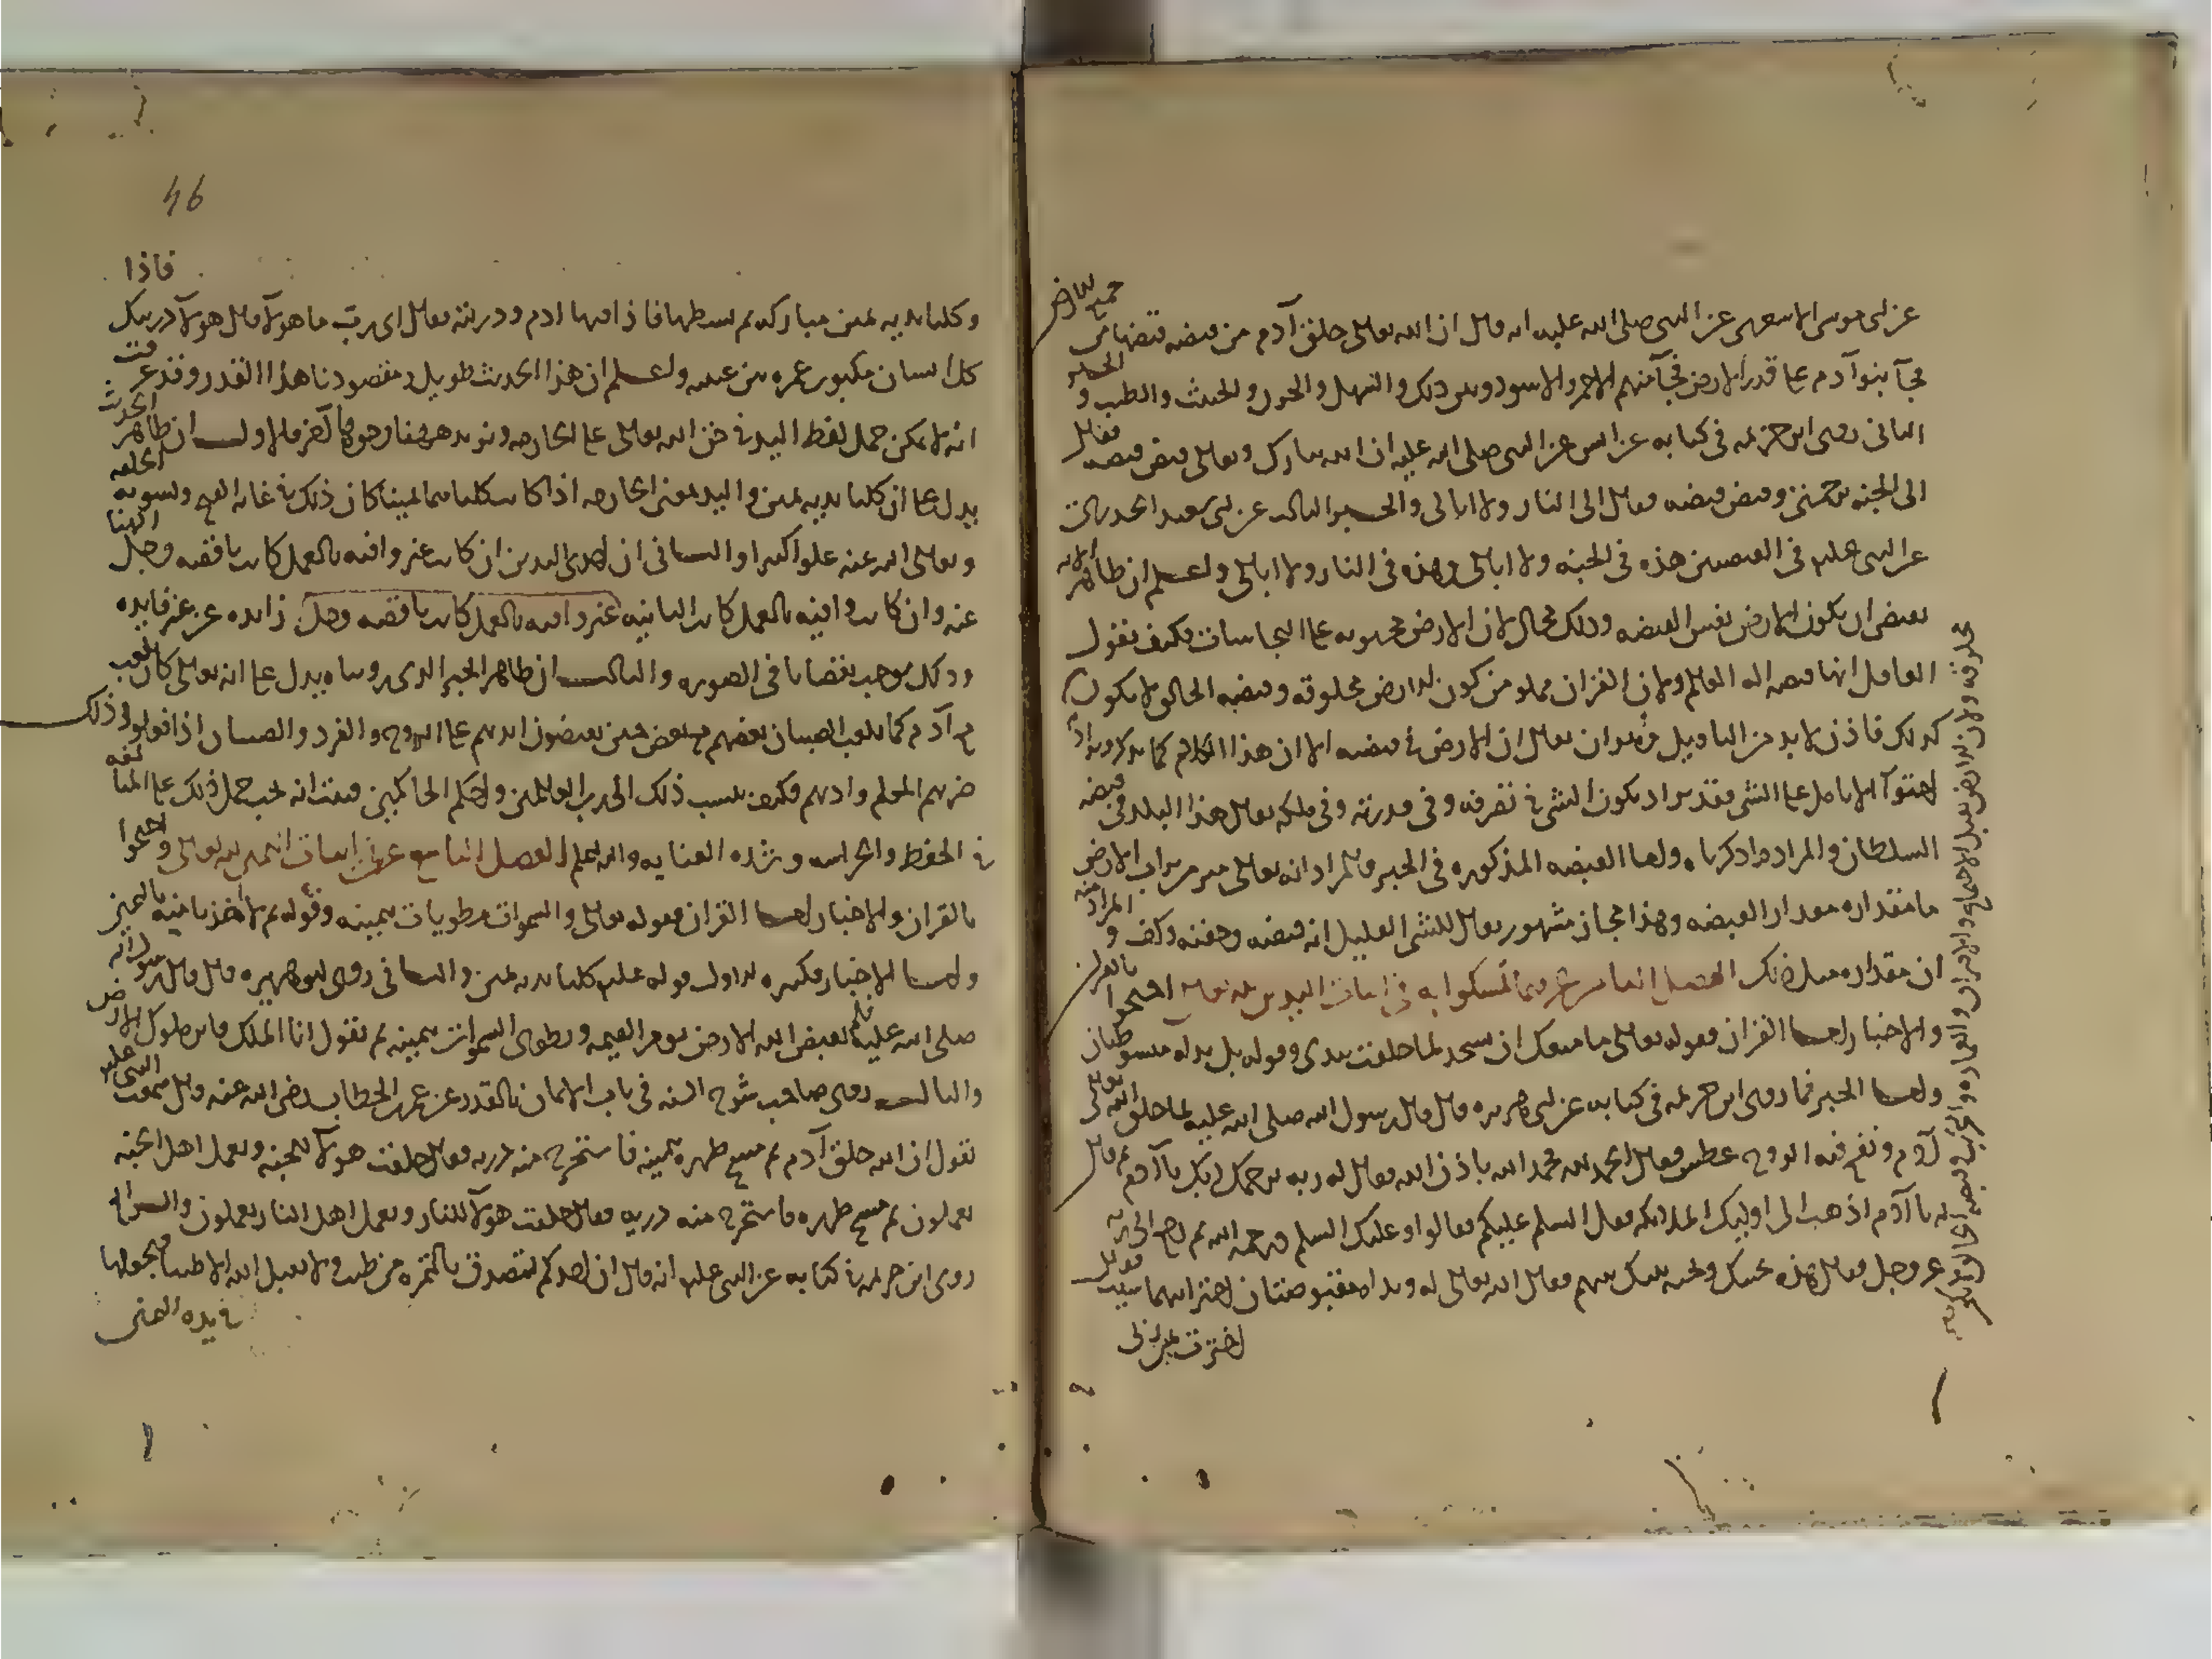 عن ابى موسى الاشعرى عن النبى صلى الله عليه انه قال ان الله تعالى خلق آدم من قبضه قبضها من جميع الارض
فجآ بنوآ آدم على قدر الارض فجآ منهم الاحمر والاسود وبين ذلك والسهل والحزن والخبيث والطيب و الخبر
الثانى روى ابن خزيمه فى كتابه عن انس عن النبى صلى الله عليه ان الله تبارك وتعالى قبض قبضه فقال
الى الجنه برحمتى وقبض قبضه فقال الى النار ولا ابالى والخبر الثالث عن ابى سعيد الخدرى
عن النبى عليه فى القبضتين هذه فى الجنه ولا ابالى وهذه فى النار ولا ابالى واعلم ان ظاهر الايه
يقتضى ان يكون الارض نفس القبضه وذلك محال لان الارض محتويه على النجاسات فكيف يقول
العاقل انها قبضه اله العالم ولان القران مملو من كون الارض مخلوقه وقبضه الخالق لا يكون
مخلوقه ولان الارض تقبل الاجتماع والافتراق والعماره والتخريب وقبضه الخالق لا يكون
كذلك فاذن لا بد من التاويل وهو ان يقال ان الارض فى قبضه الا ان هذا الكلام كما يذكر ويراد
احتوآ الانامل على الشى فقد يراد بكون الشى فى تصرفه وفى قدرته وفى ملكه يقال هذا البلد فى قبضه
السلطان والمراد ما ذكرناه واما القبضه المذكوره فى الخبر فالمراد انه تعالى ميز من تراب الارض
ما مقداره مقدار القبضه وهذا مجاز مشهور يقال للشى القليل انه قبضه وحفنه وكف و المراد منه
ان مقداره مثل ذلك الفصل الثامن عشر فيما تمسكوا به فى اثبات اليدين لله تعالى احتجوا بالقران
والاخبار اما القران فقوله تعالى ما منعك ان تسجد لما خلقت بيدى وقوله بل يداه مبسوطتان
واما الخبر فما روى ابن خزيمه فى كتابه عن ابى هريره قال قال رسول الله صلى الله عليه لما خلق الله تعالى
آدم ونفخ فيه الروح عطس فقال الحمد لله فحمد الله باذن الله فقال له ربه يرحمك ربك يا آدم ثم قال
له يا آدم اذهب الى اوليك الملايكه فقل السلم عليكم فقالوا وعليك السلم ورحمه الله ثم رجع الى ربه
عز وجل فقال هذه تحيتك وتحيه بنيك بينهم فقال الله تعالى له ويداه مقبوضتان اختر ايهما شيت فقال
اخترت يمين ربى
46
وكلتا يديه يمين مباركه ثم بسطها فاذا فيها ادم وذريته فقال اى رب ما هولآ قال هولآ ذريتك فاذا
كل انسان مكتوب عمره بين عينيه واعلم ان هذا الحديث طويل ومقصودنا هذا القدر وقد عرفت
انه لا يمكن حمل لفظ اليد فى حق الله تعالى على الجارحه ونزيد ههنا وجوها آخر فالاول ان ظاهر الحديث
يدل على ان كلتا يديه يمين واليد بمعنى الجارحه اذا كانت كلتاهما يمينا كان ذلك فى غايه القبح وتشويه الخلقه
وتعالى الله عنه علوا كبيرا والثانى ان احدى اليدين ان كانت غير وافيه بالعمل كانت ناقصه وجل الهنا
عنه وان كانت وافيه بالعمل كانت الثانيه غير وافيه بالعمل كانت ناقصه وجل زايده عن غير فايده
وذلك يوجب نقصانا فى الصوره والثالث ان ظاهر الخبر الذى رويناه يدل على انه تعالى كان يلعب
مع آدم كما يلعب الصبيان بعضهم مع بعض حين يقبضون ايديهم على الزوج والفرد والصبيان اذا فعلوا ذلك
ضربهم المعلم وادبهم فكيف ينسب ذلك الى رب العالمين واحكم الحاكمين فثبت انه يجب حمل ذلك على المبالغه
فى الحفظ والحراسه وشده العنايه والله اعلم الفصل التاسع عشر فى اثبات اليمين لله تعالى واحتجوا
بالقران والاخبار اما القران فقوله تعالى والسموات مطويات بيمينه وقوله ثم لاخذنا منه باليمين
واما الاخبار فكثيره الاول قوله عليه كلتا يديه يمين والثانى روى ابو هريره قال قال رسول الله
صلى الله عليه يقبض الله الارض يوم القيمه ويطوى السموات بيمينه ثم يقول انا الملك فاين ملوك الارض
والثالث روى صاحب شرح السنه فى باب الايمان بالقدر عن عمر بن الخطاب رضى الله عنه قال سمعت النبى عليه
يقول ان الله خلق آدم ثم مسح ظهره بيمينه فاستخرج منه ذريه فقال خلقت هولآ للجنه وبعمل اهل الجنه
يعملون ثم مسح ظهره فاستخرج منه ذريه فقال خلقت هولآ للنار وبعمل اهل النار يعملون والرابع
روى ابن خزيمه فى كتابه عن النبى عليه انه قال ان احدكم ليتصدق بالتمره من طيب ولا يقبل الله الا طيبا فيجعلها
فى يده اليمنى